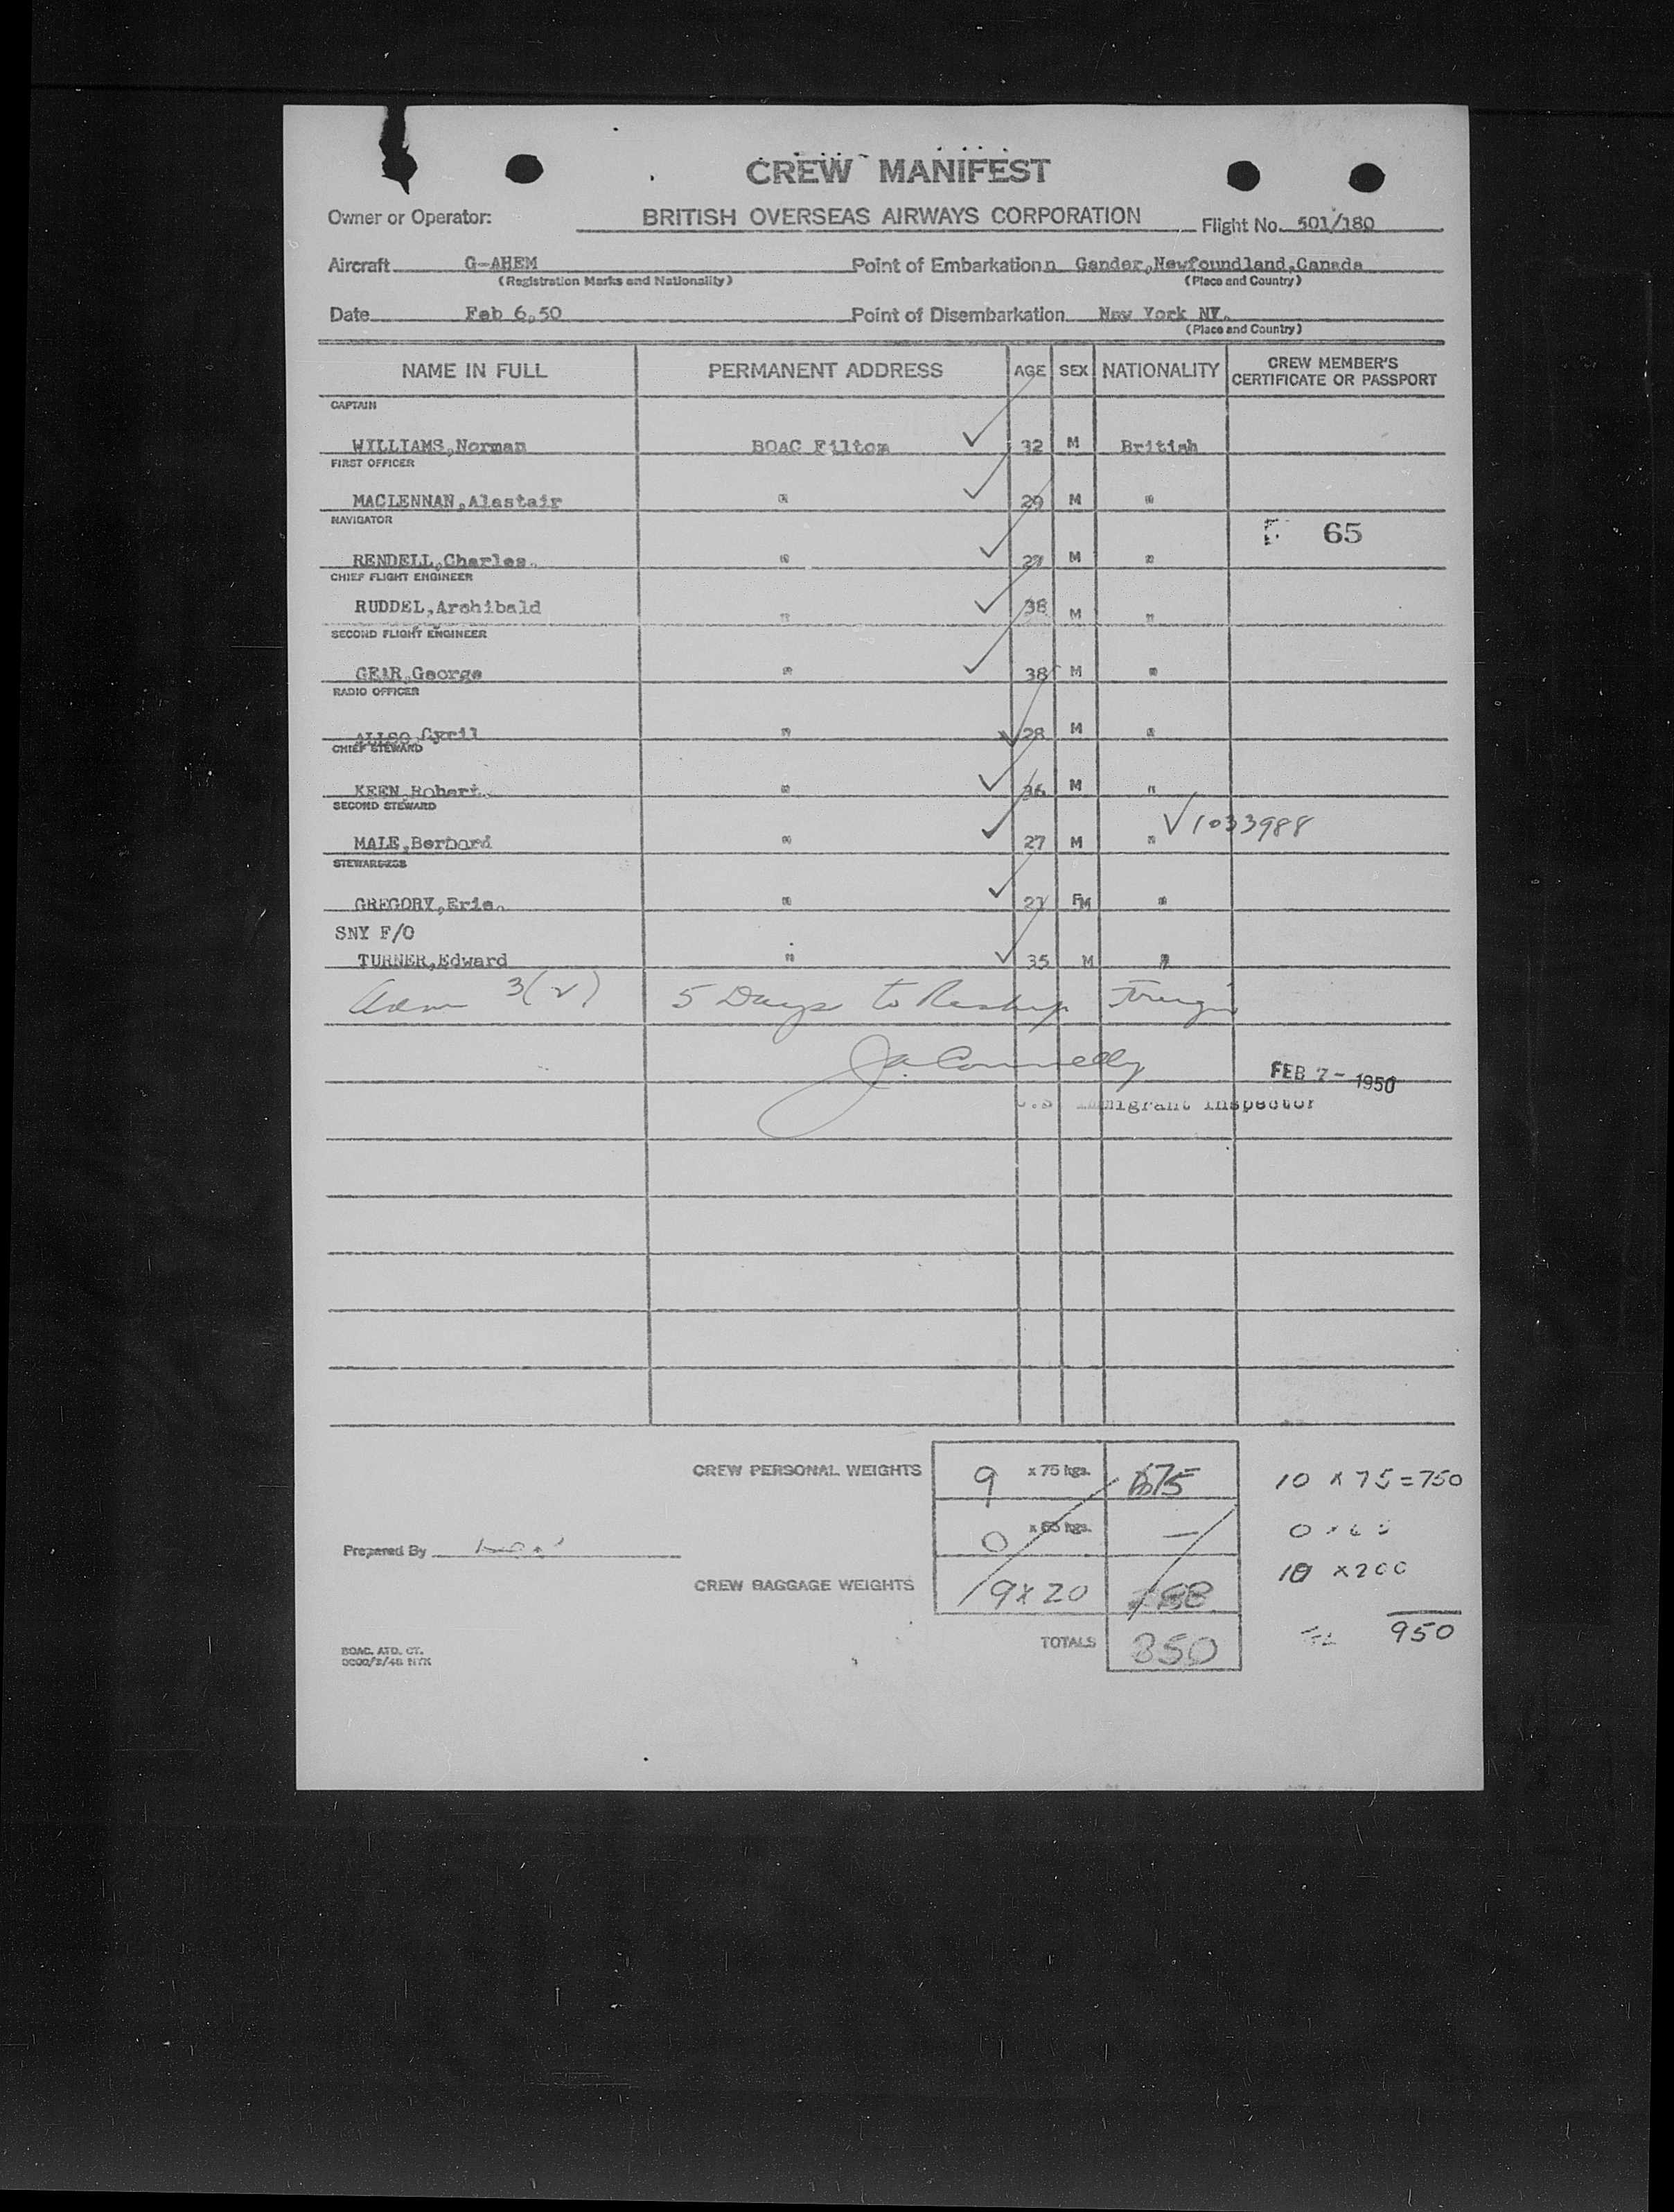 CREW MANIFEST
Owner or Operator: BRITISH OVERSEAS AIRWAYS CORPORATION Flight No. 501/180
Aircraft G-AHEM Point of Embarkation n Gander,Newfoundland,Canada
(Registration Marks and Nationality) (Place and Country)
Date Feb 6,50 Point of Disembarkation New York NY.
(Place and Country)
NAME IN FULL PERMANENT ADDRESS AGE SEX NATIONALITY CREW MEMBER'S CERTIFICATE OR PASSPORT
CAPTAIN
WILLIAMS,Norman BOAC Filton 32 M British
FIRST OFFICER
MACLENNAN,Alastair " 29 M "
NAVIGATOR
F 65
RENDELL,Charles. " 27 M "
CHIEF FLIGHT ENGINEER
RUDDEL,Archibald " 38 M "
SECOND FLIGHT ENGINEER
GEAR,George " 38 M "
RADIO OFFICER
Cyril " 28 M "
CHIEF STEWARD
KEEN,Robert. " 36 M "
SECOND STEWARD
1033988
MALE,Bernard " 27 M "
STEWARDESS
GREGORY,Eric. " 27 M "
SNY F/O
TURNER,Edward " 35 M "
Adm 3(v) 5 Days to Reship Foreign
J.A. Connelly
FEB 7 - 1950
U.S. Immigrant Inspector
CREW PERSONAL WEIGHTS 9 x 75 kgs. 675 10 x 75 = 750
0 x 65 kgs. — 0 x 65
Prepared By
CREW BAGGAGE WEIGHTS 9 x 20 10 x 200
TOTALS 850 950
BOAC. ATD. CT.